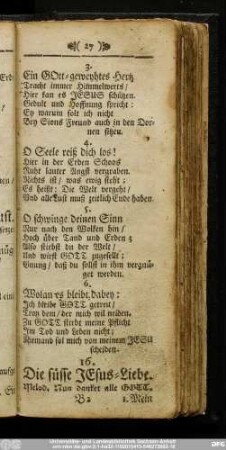 27
3.
Ein GOtt-geweyhtes Hertz
Tracht immer Himmelwerts/
Hier kan es JESUS schützen.
Gedult und Hoffnung spricht:
Ey warum solt ich nicht
Bey Sions Freund auch in den Dor-
nen sitzen.
4.
O Seele reiß dich los!
Hier in der Erden Schoos
Ruht lauter Angst vergraben.
Nichts ist/ was ewig steht:
Es heißt: Die Welt vergeht/
Und alle Lust muß zeitlich Ende haben.
5.
O schwinge deinen Sinn
Nur nach den Wolken hin/
Hoch über Tand und Erden:
Also stirbst du der Welt/
Und wirst GOTT zugesellt:
Genung/ daß du sollst in ihm vergnü-
get werden.
6.
Wolan es bleibt dabey:
Ich bleibe GOTT getreu/
Trotz dem/ der mich will neiden.
Zu GOTT steht meine Pflicht
Im Tod und Leben nicht:
Niemand soll mich von meinem JESU
scheiden.
16.
Die süsse JEsus-Liebe.
Melod. Nun danket alle GOTT.
B 2
1. Mein